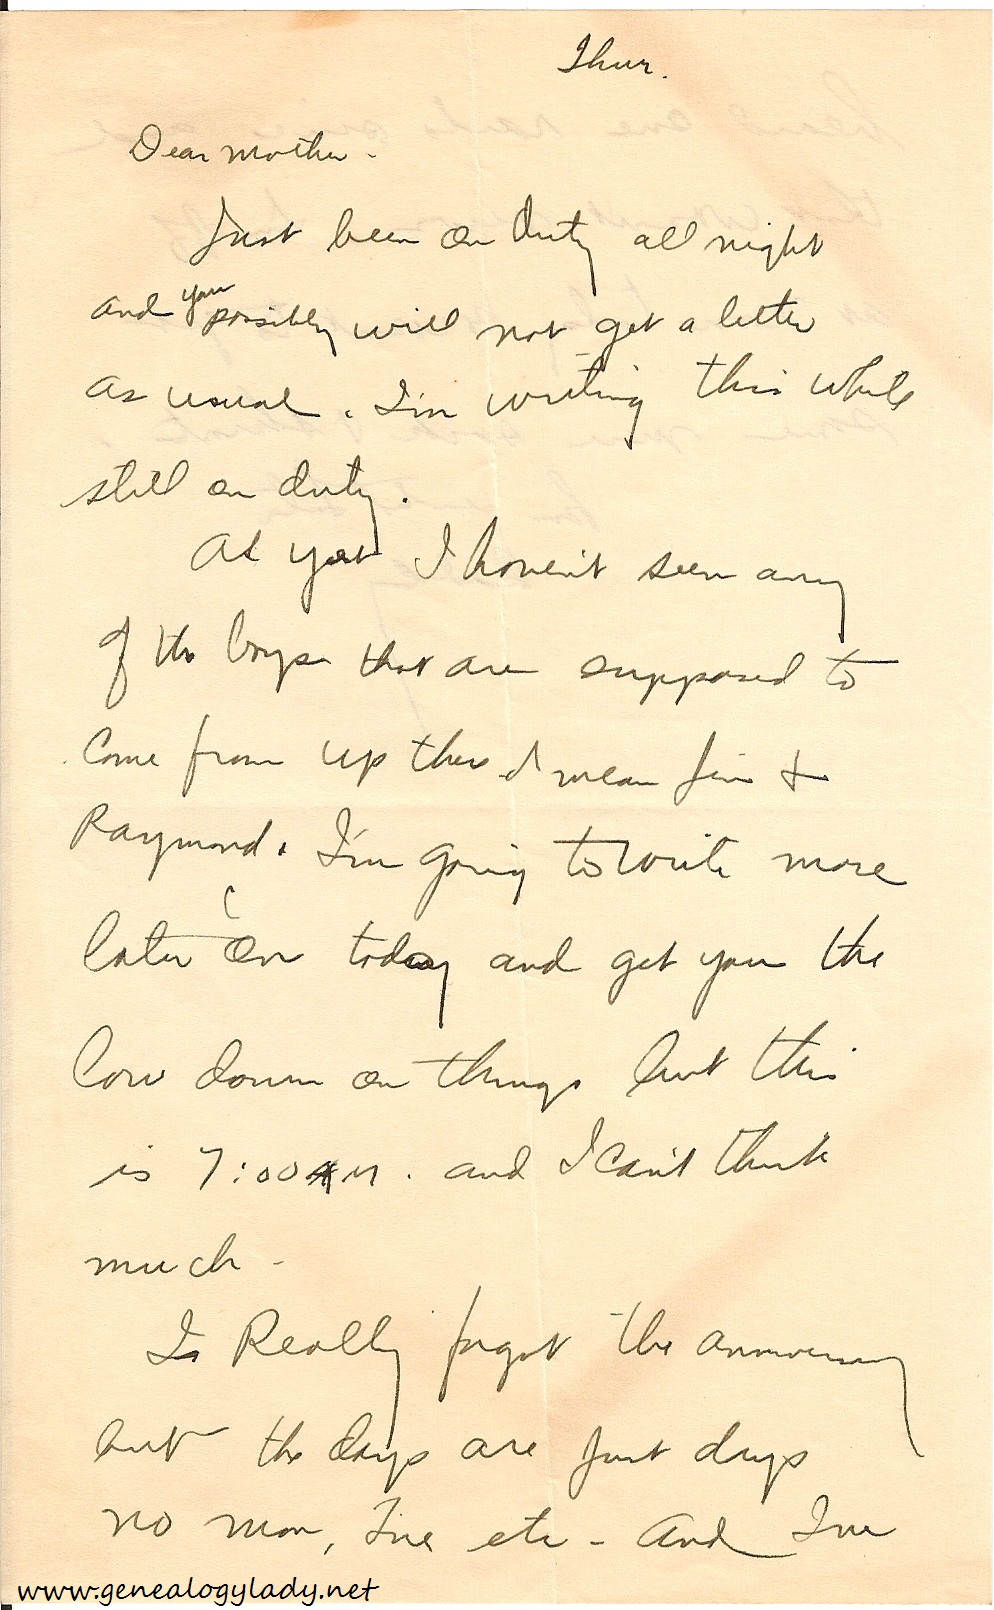 Thur.
Dear Mother -
Just been on duty all night
and you possibly will not get a letter
as usual. I'm writing this while
still on duty.
As yet I haven't seen any
of the boys that are supposed to
come from up there I mean Jim &
Raymond. I'm going to write more
later on today and get you the
low down on things but this
is 7:00 AM. and I can't think
much -
I Really forgot the anniversary
but the days are just days
no mon, Tue etc - And I've
www.genealogylady.net